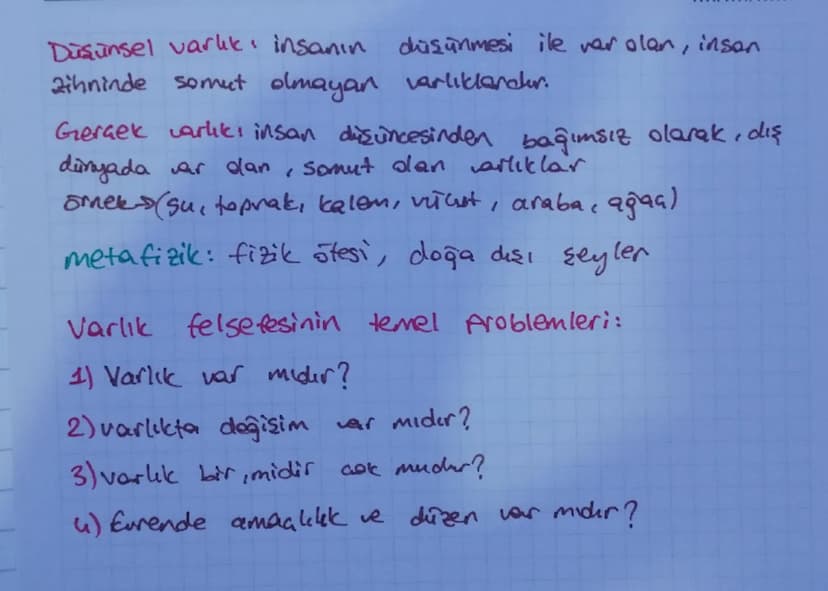 Düşünsel varlık: insanın düşünmesi ile var olan, insan
zihninde somut olmayan varlıklardır.
Gerçek varlık: insan düşüncesinden bağımsız olarak, dış
dünyada var olan, somut olan varlıklar
örnek→(su, toprak, kalem, vücut, araba, ağaç)
metafizik: fizik ötesi, doğa dışı şeyler
Varlık felsefesinin temel problemleri:
1) Varlık var mıdır?
2) varlıkta değişim var mıdır?
3) varlık bir, midir çok mudur?
4) Evrende amaçlılık ve düzen var mıdır?